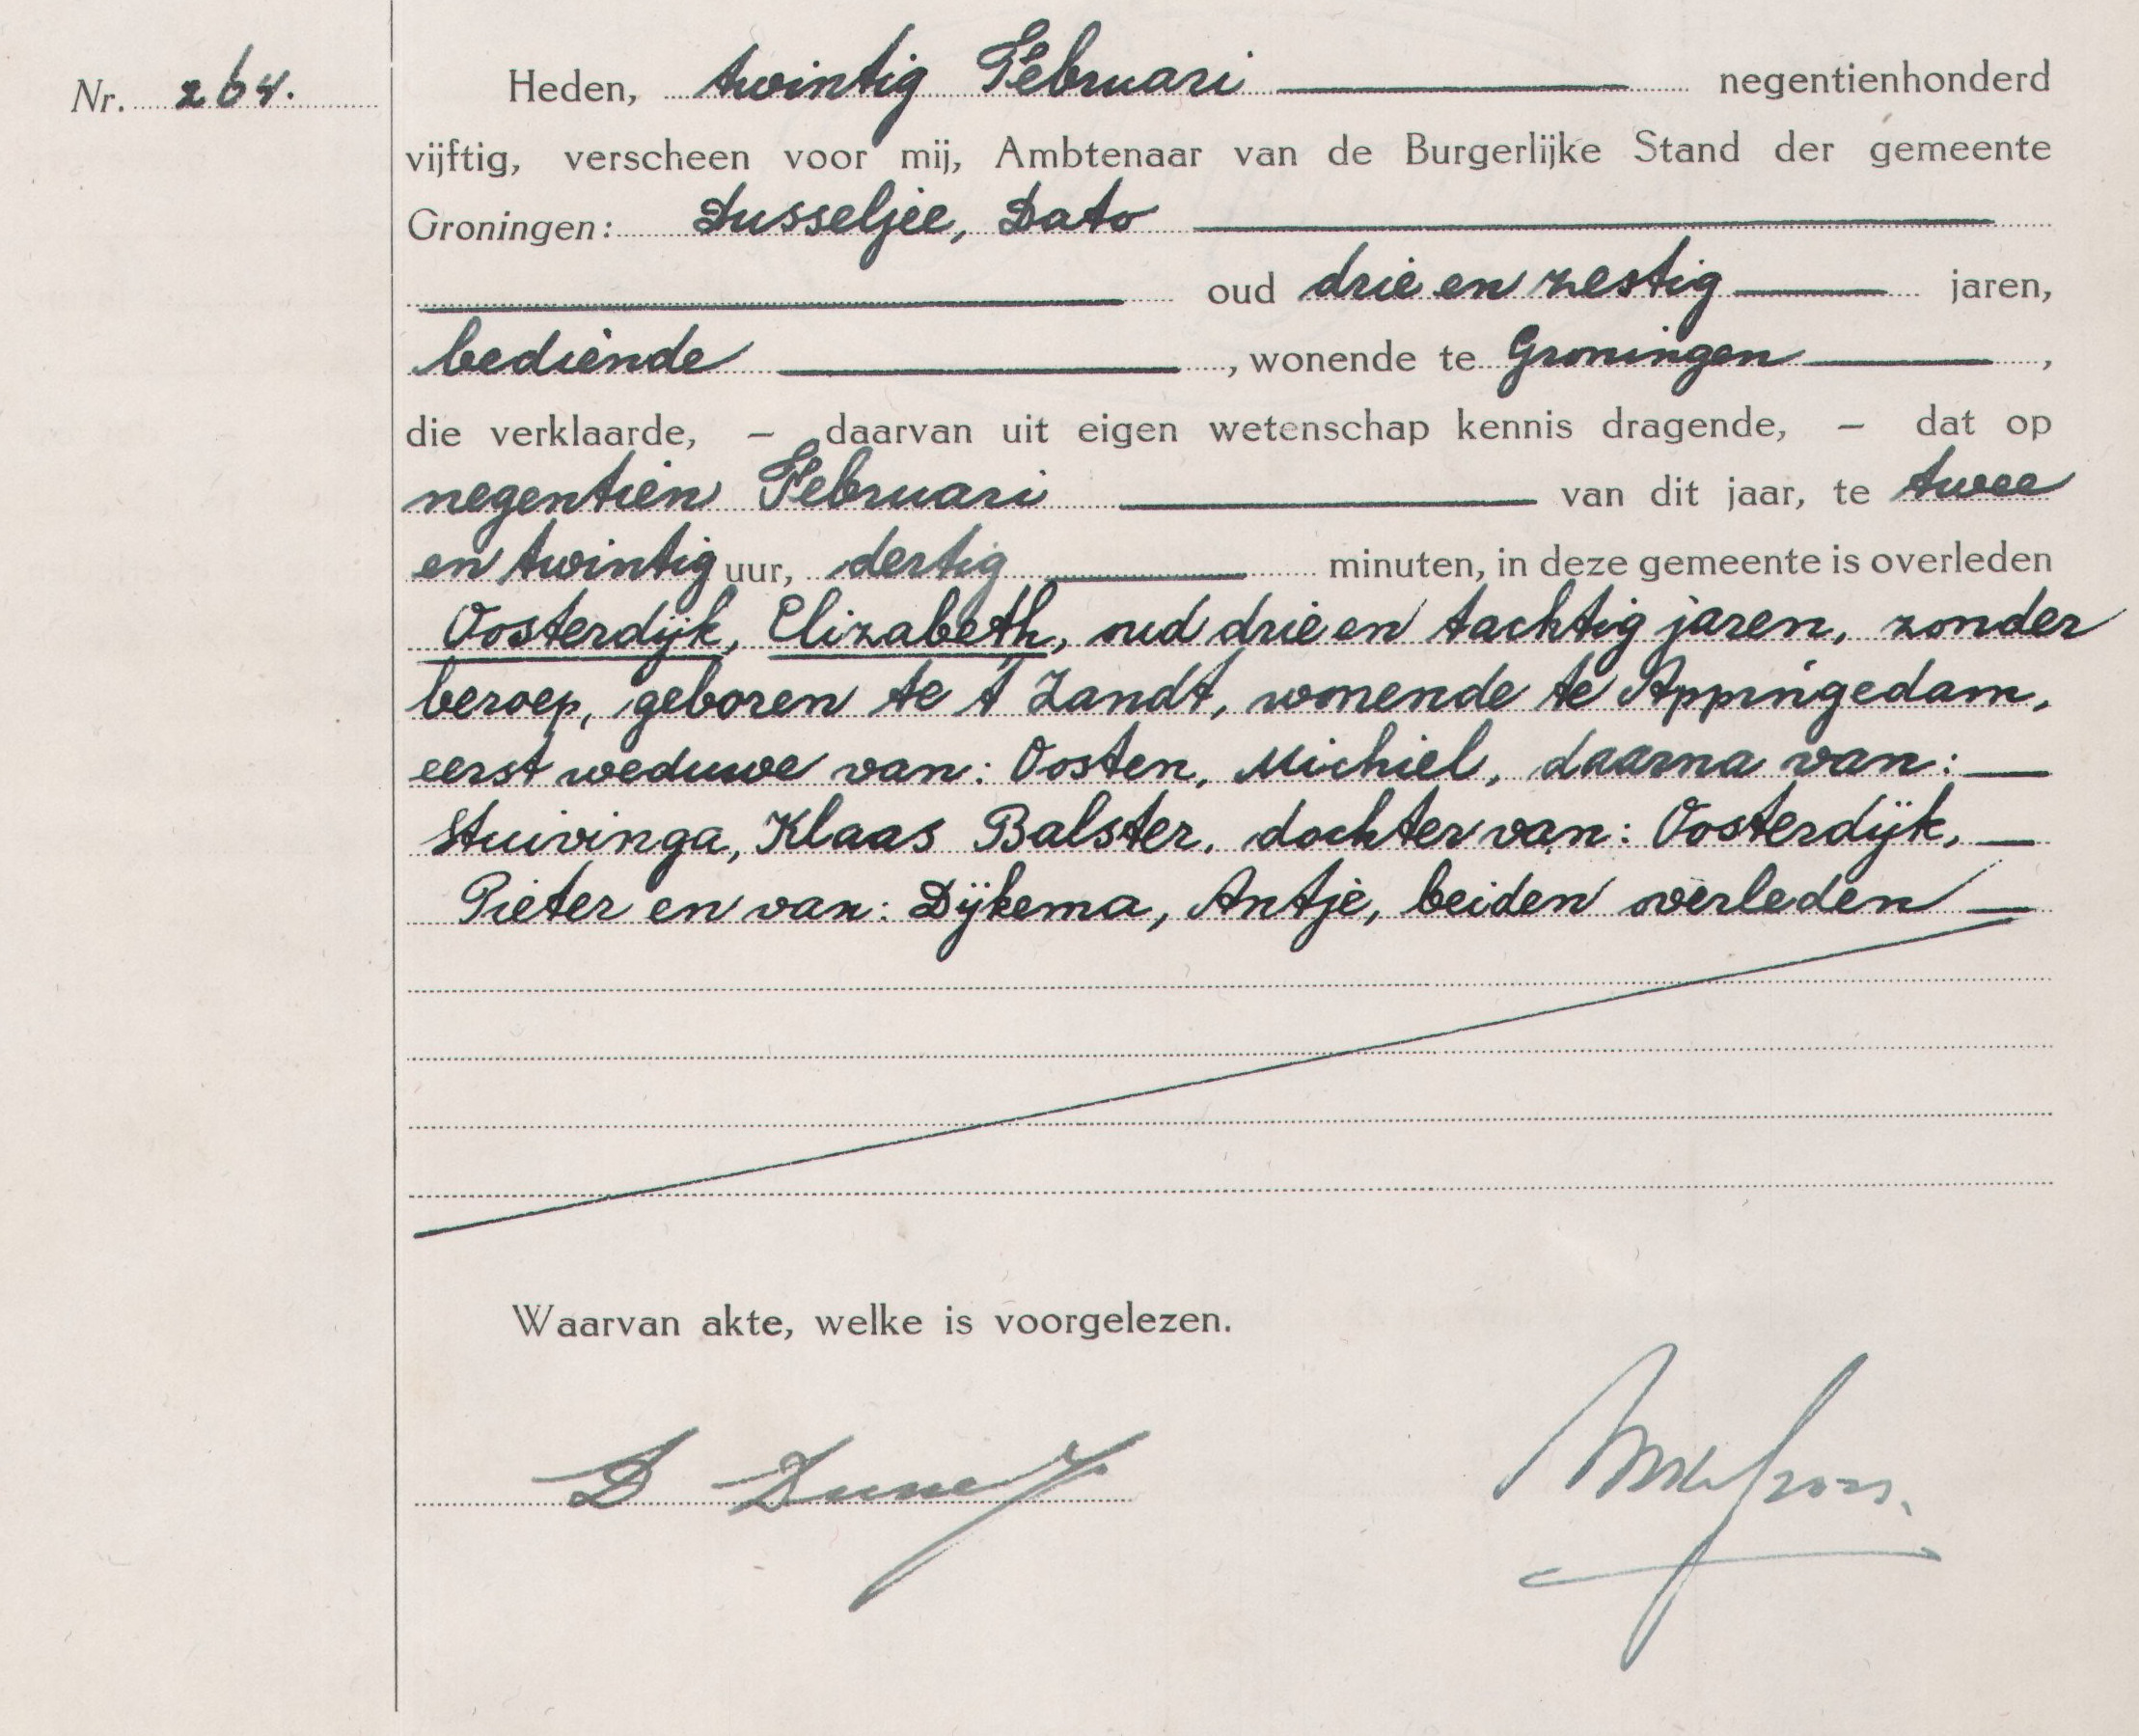 Nr. 264.
Heden, twintig Februari negentienhonderd
vijftig, verscheen voor mij, Ambtenaar van de Burgerlijke Stand der gemeente
Groningen: Dusseljee, Dato
oud drie en zestig jaren,
bediende, wonende te Groningen,
die verklaarde, — daarvan uit eigen wetenschap kennis dragende, — dat op
negentien Februari van dit jaar, te twee
en twintig uur, dertig minuten, in deze gemeente is overleden
Oosterdijk, Elizabeth, oud drie en tachtig jaren, zonder
beroep, geboren te 't Zandt, wonende te Appingedam,
eerst weduwe van: Oosten, Michiel, daarna van:
Stuivinga, Klaas Balster, dochter van: Oosterdijk,
Pieter en van: Dijkema, Antje, beiden overleden
Waarvan akte, welke is voorgelezen.
D